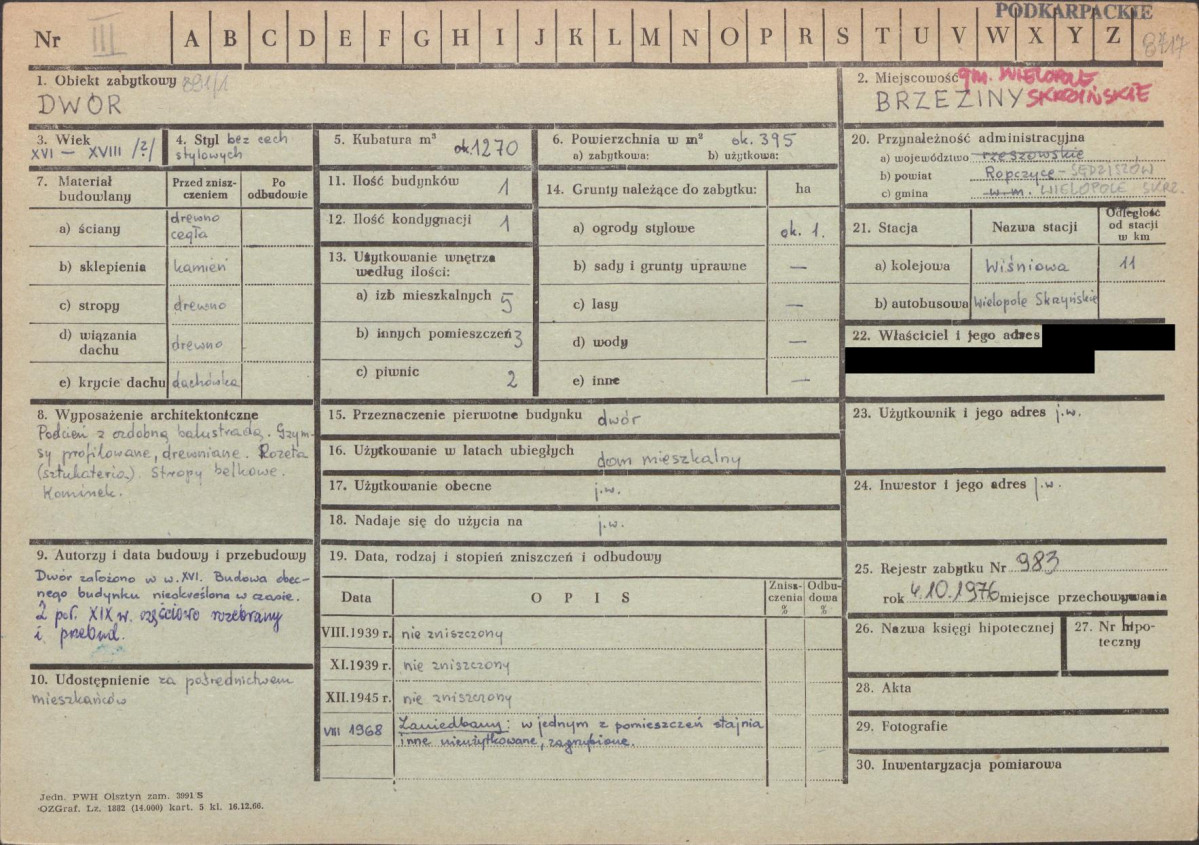 PODKARPACKIE
Nr III A B C D E F G H I J K L M N O P R S T U V W X Y Z
1. Obiekt zabytkowy 891/1
DWÓR
2. Miejscowość gm. WIELOPOLE
BRZEZINY SKRZYŃSKIE
3. Wiek
XVI – XVIII /?/
4. Styl bez cech
stylowych
5. Kubatura m³ ok. 1270
6. Powierzchnia w m² ok. 395
a) zabytkowa: b) użytkowa:
7. Materiał
budowlany
Przed znisz-
czeniem
Po
odbudowie
a) ściany drewno
cegła
b) sklepienia kamień
c) stropy drewno
d) wiązania
dachu drewno
e) krycie dachu dachówka
8. Wyposażenie architektoniczne
Podcień z ozdobną balustradą. Gzym-
sy profilowane, drewniane. Rozeta
(sztukateria). Stropy belkowe.
Kominek.
9. Autorzy i data budowy i przebudowy
Dwór założono w w. XVI. Budowa obec-
nego budynku nieokreślona w czasie.
2 poł. XIX w. częściowo rozebrany
i przebud.
10. Udostępnienie za pośrednictwem
mieszkańców
11. Ilość budynków 1
12. Ilość kondygnacji 1
13. Użytkowanie wnętrza
według ilości:
a) izb mieszkalnych 5
b) innych pomieszczeń 3
c) piwnic 2
14. Grunty należące do zabytku: ha
a) ogrody stylowe ok. 1.
b) sady i grunty uprawne —
c) lasy —
d) wody —
e) inne —
15. Przeznaczenie pierwotne budynku dwór
16. Użytkowanie w latach ubiegłych dom mieszkalny
17. Użytkowanie obecne j.w.
18. Nadaje się do użycia na j.w.
19. Data, rodzaj i stopień zniszczeń i odbudowy
Data O P I S Znisz-
czenia
%
Odbu-
dowa
%
VIII.1939 r. nie zniszczony
XI.1939 r. nie zniszczony
XII.1945 r. nie zniszczony
VIII 1968 Zaniedbany: w jednym z pomieszczeń stajnia
inne nieużytkowane, zagrzybione.
20. Przynależność administracyjna
a) województwo rzeszowskie
b) powiat Ropczyce – SĘDZISZÓW
c) gmina w.m. WIELOPOLE SKRZ.
21. Stacja Nazwa stacji Odległość
od stacji
w km
a) kolejowa Wiśniowa 11
b) autobusowa Wielopole Skrzyńskie
22. Właściciel i jego adres
23. Użytkownik i jego adres j.w.
24. Inwestor i jego adres j.w.
25. Rejestr zabytku Nr 983
rok 4.10.1976 miejsce przechowywania
26. Nazwa księgi hipotecznej
27. Nr hipo-
teczny
28. Akta
29. Fotografie
30. Inwentaryzacja pomiarowa
Jedn. PWH Olsztyn zam. 3991 S
OZGraf. Lz. 1882 (14.000) kart. 5 kl. 16.12.66.